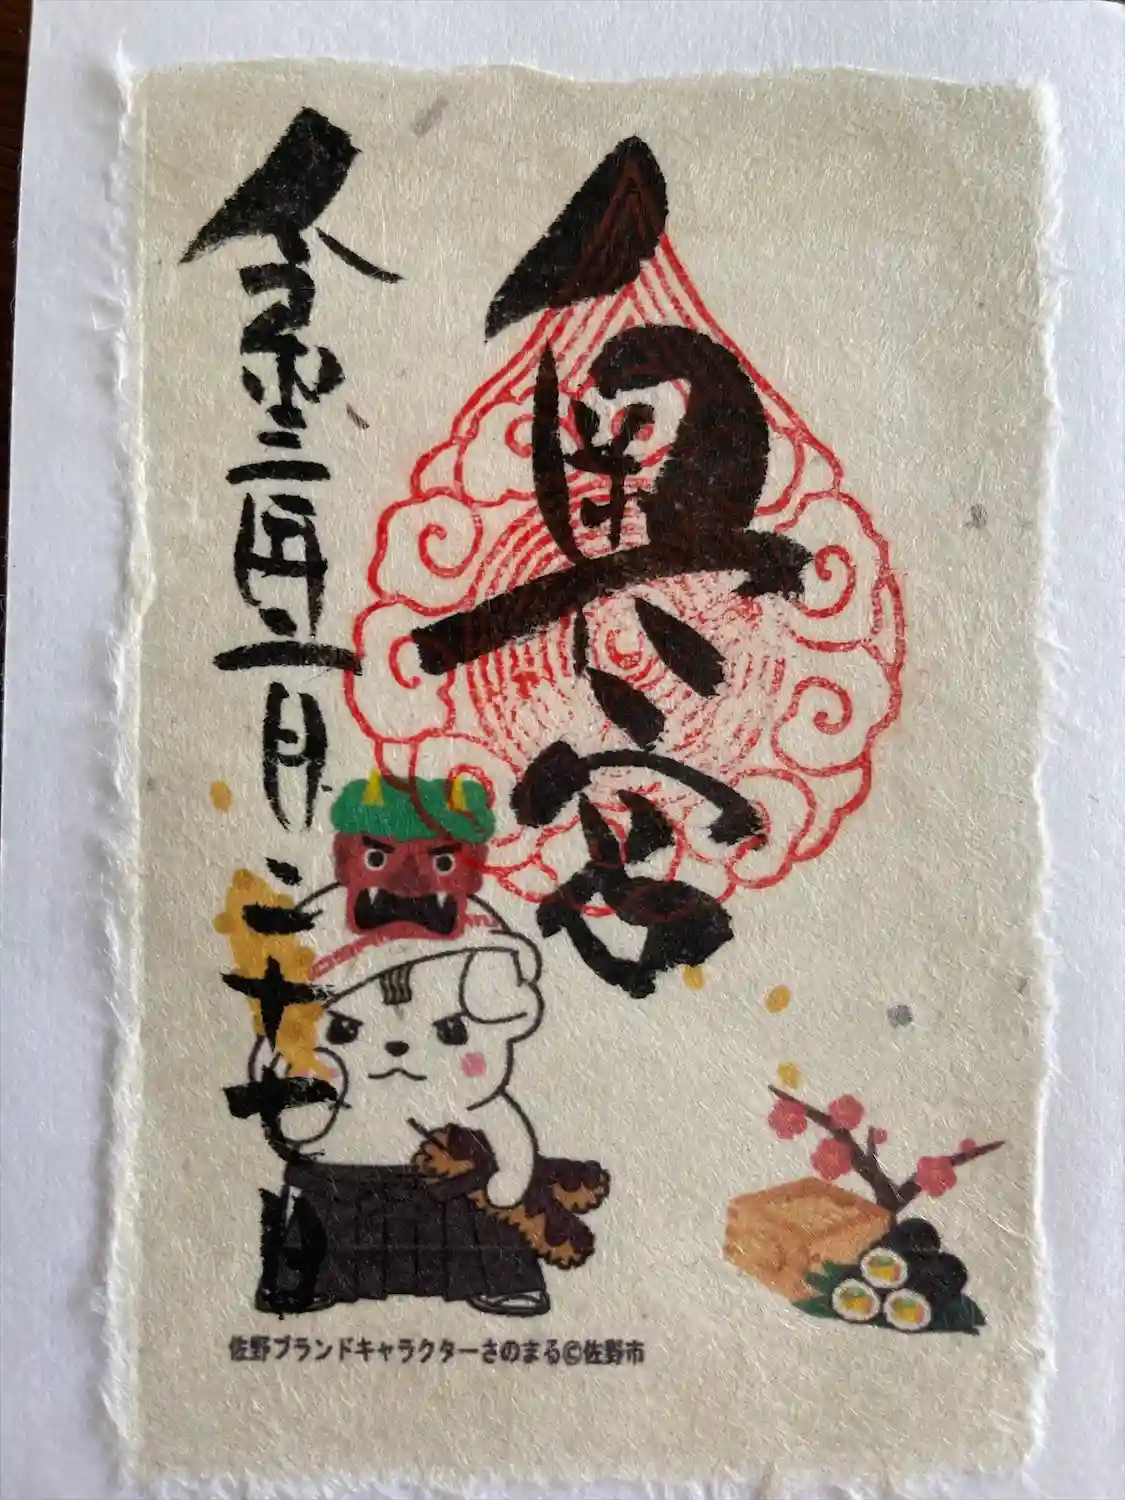 奥之宮
令和二年二月二十七日
佐野ブランドキャラクターさのまる©佐野市